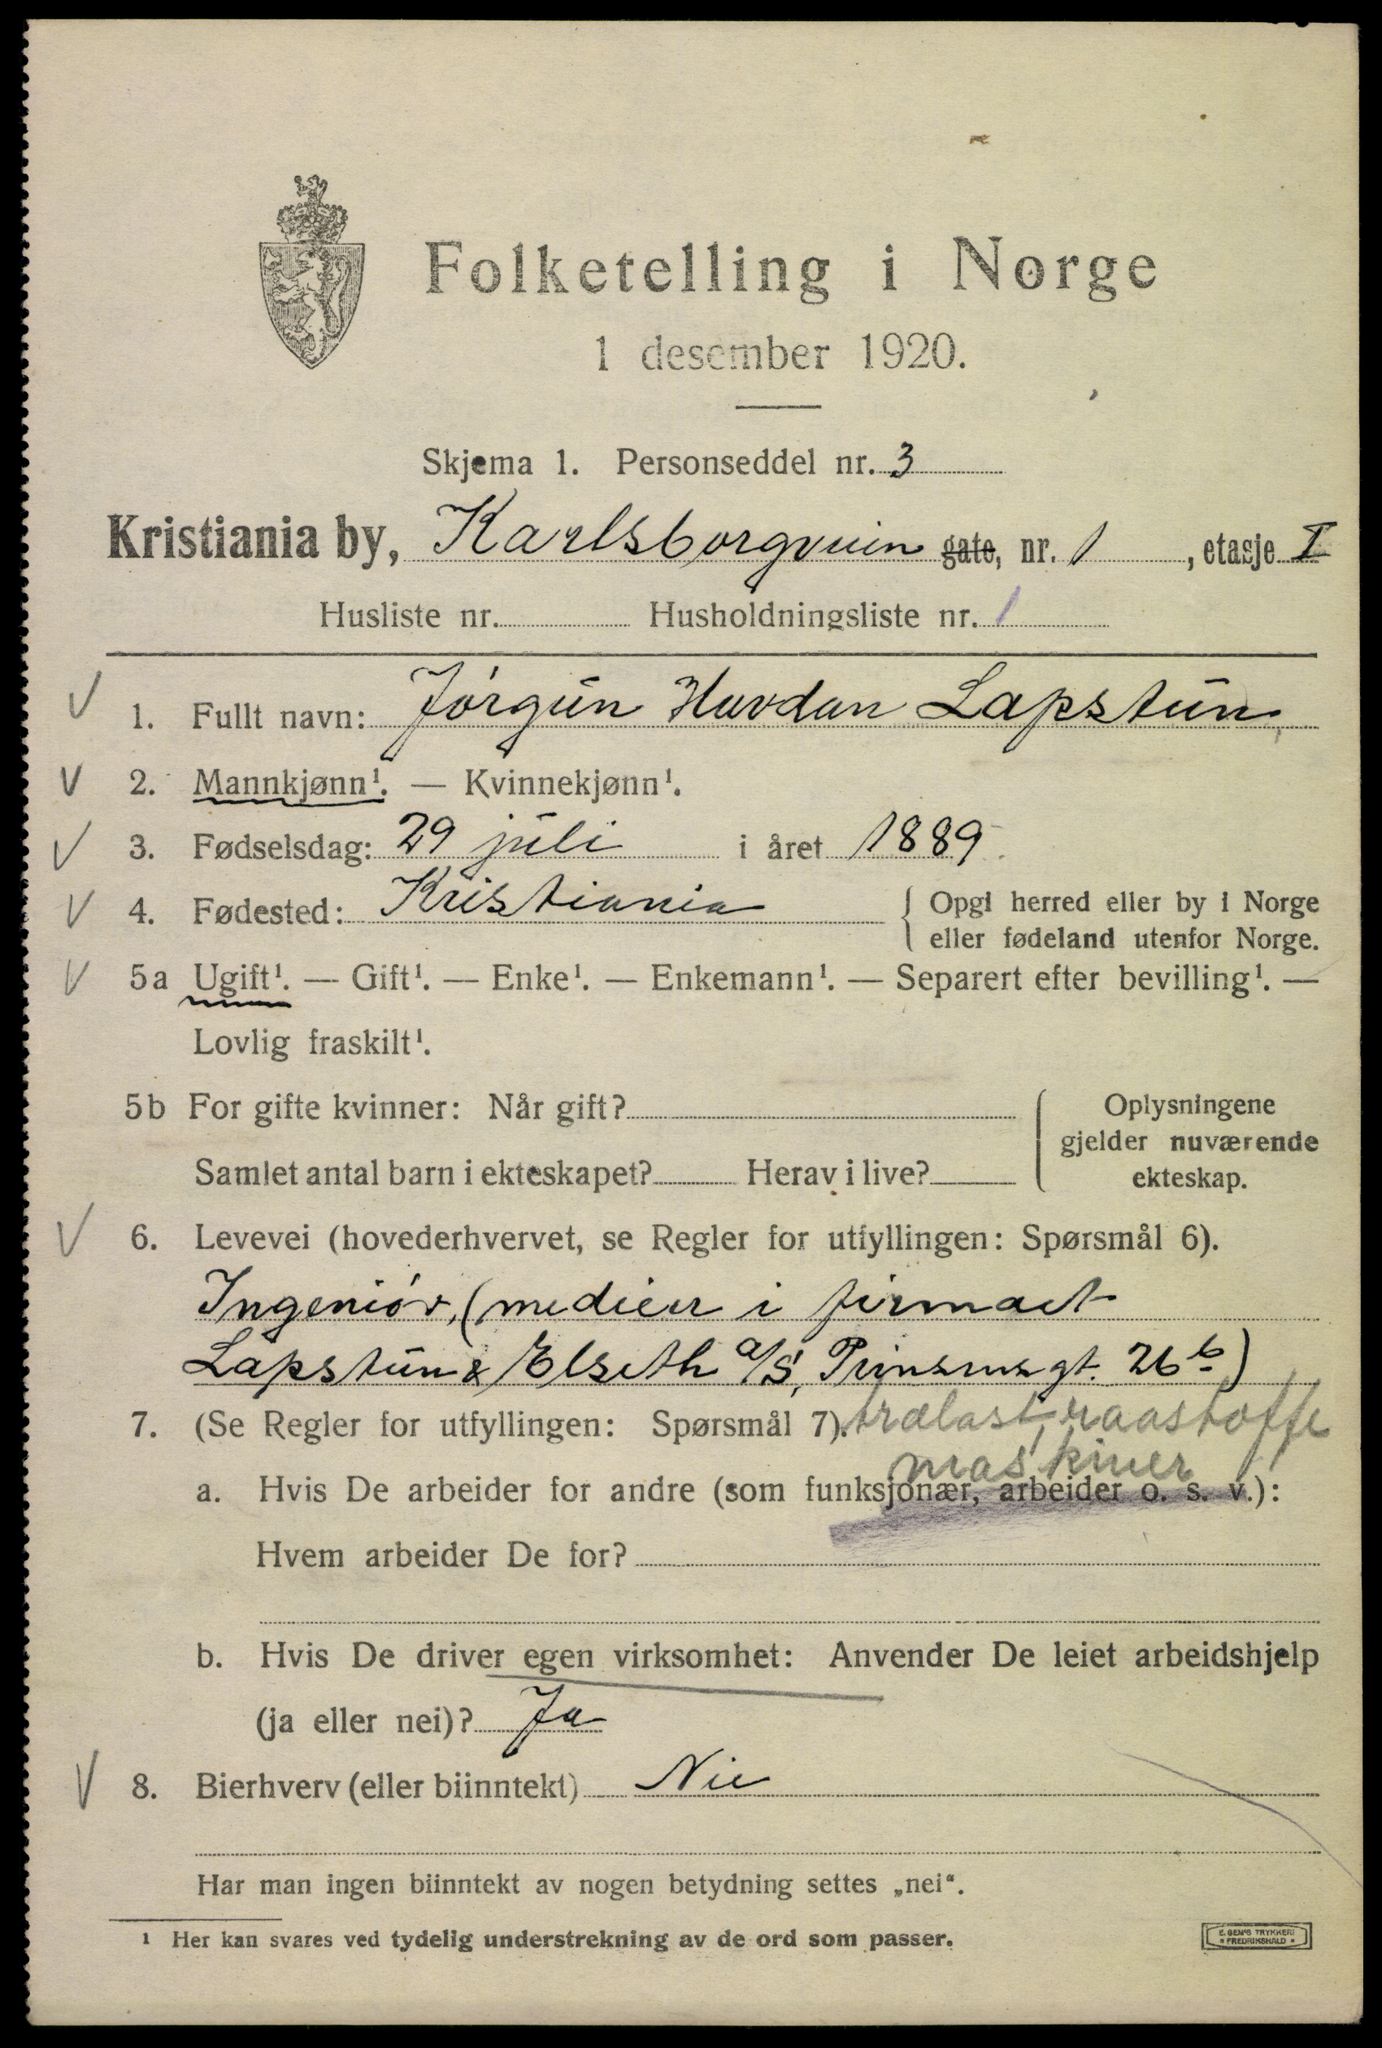 Folketelling i Norge
1 desember 1920.
Skjema 1. Personseddel nr. 3
Kristiania by, Karlsborgveien gate, nr. 1, etasje I
Husliste nr. Husholdningsliste nr. 1
1. Fullt navn: Jørgen Havdan Lapstun
2. Mannkjønn¹. — Kvinnekjønn¹.
3. Fødselsdag: 29 juli i året 1889
4. Fødested: Kristiania { Opgi herred eller by i Norge
eller fødeland utenfor Norge.
5a Ugift¹. — Gift¹. — Enke¹. — Enkemann¹. — Separert efter bevilling¹. —
Lovlig fraskilt¹.
5b For gifte kvinner: Når gift? { Oplysningene
gjelder nuværende
Samlet antal barn i ekteskapet? Herav i live? ekteskap.
6. Levevei (hovederhvervet, se Regler for utfyllingen: Spørsmål 6).
Ingeniór, (medieier i firmaet
Lapstun & Elseth a/s, Prinsensgt. 26 b)
7. (Se Regler for utfyllingen: Spørsmål 7). trælast, raastoffe
maskiner
a. Hvis De arbeider for andre (som funksjonær, arbeider o. s. v.):
Hvem arbeider De for?
b. Hvis De driver egen virksomhet: Anvender De leiet arbeidshjelp
(ja eller nei)? Ja
8. Bierhverv (eller biinntekt) Nei
Har man ingen biinntekt av nogen betydning settes „nei“.
¹ Her kan svares ved tydelig understrekning av de ord som passer.
E. SEM'S TRYKKERI
FREDRIKSHALD